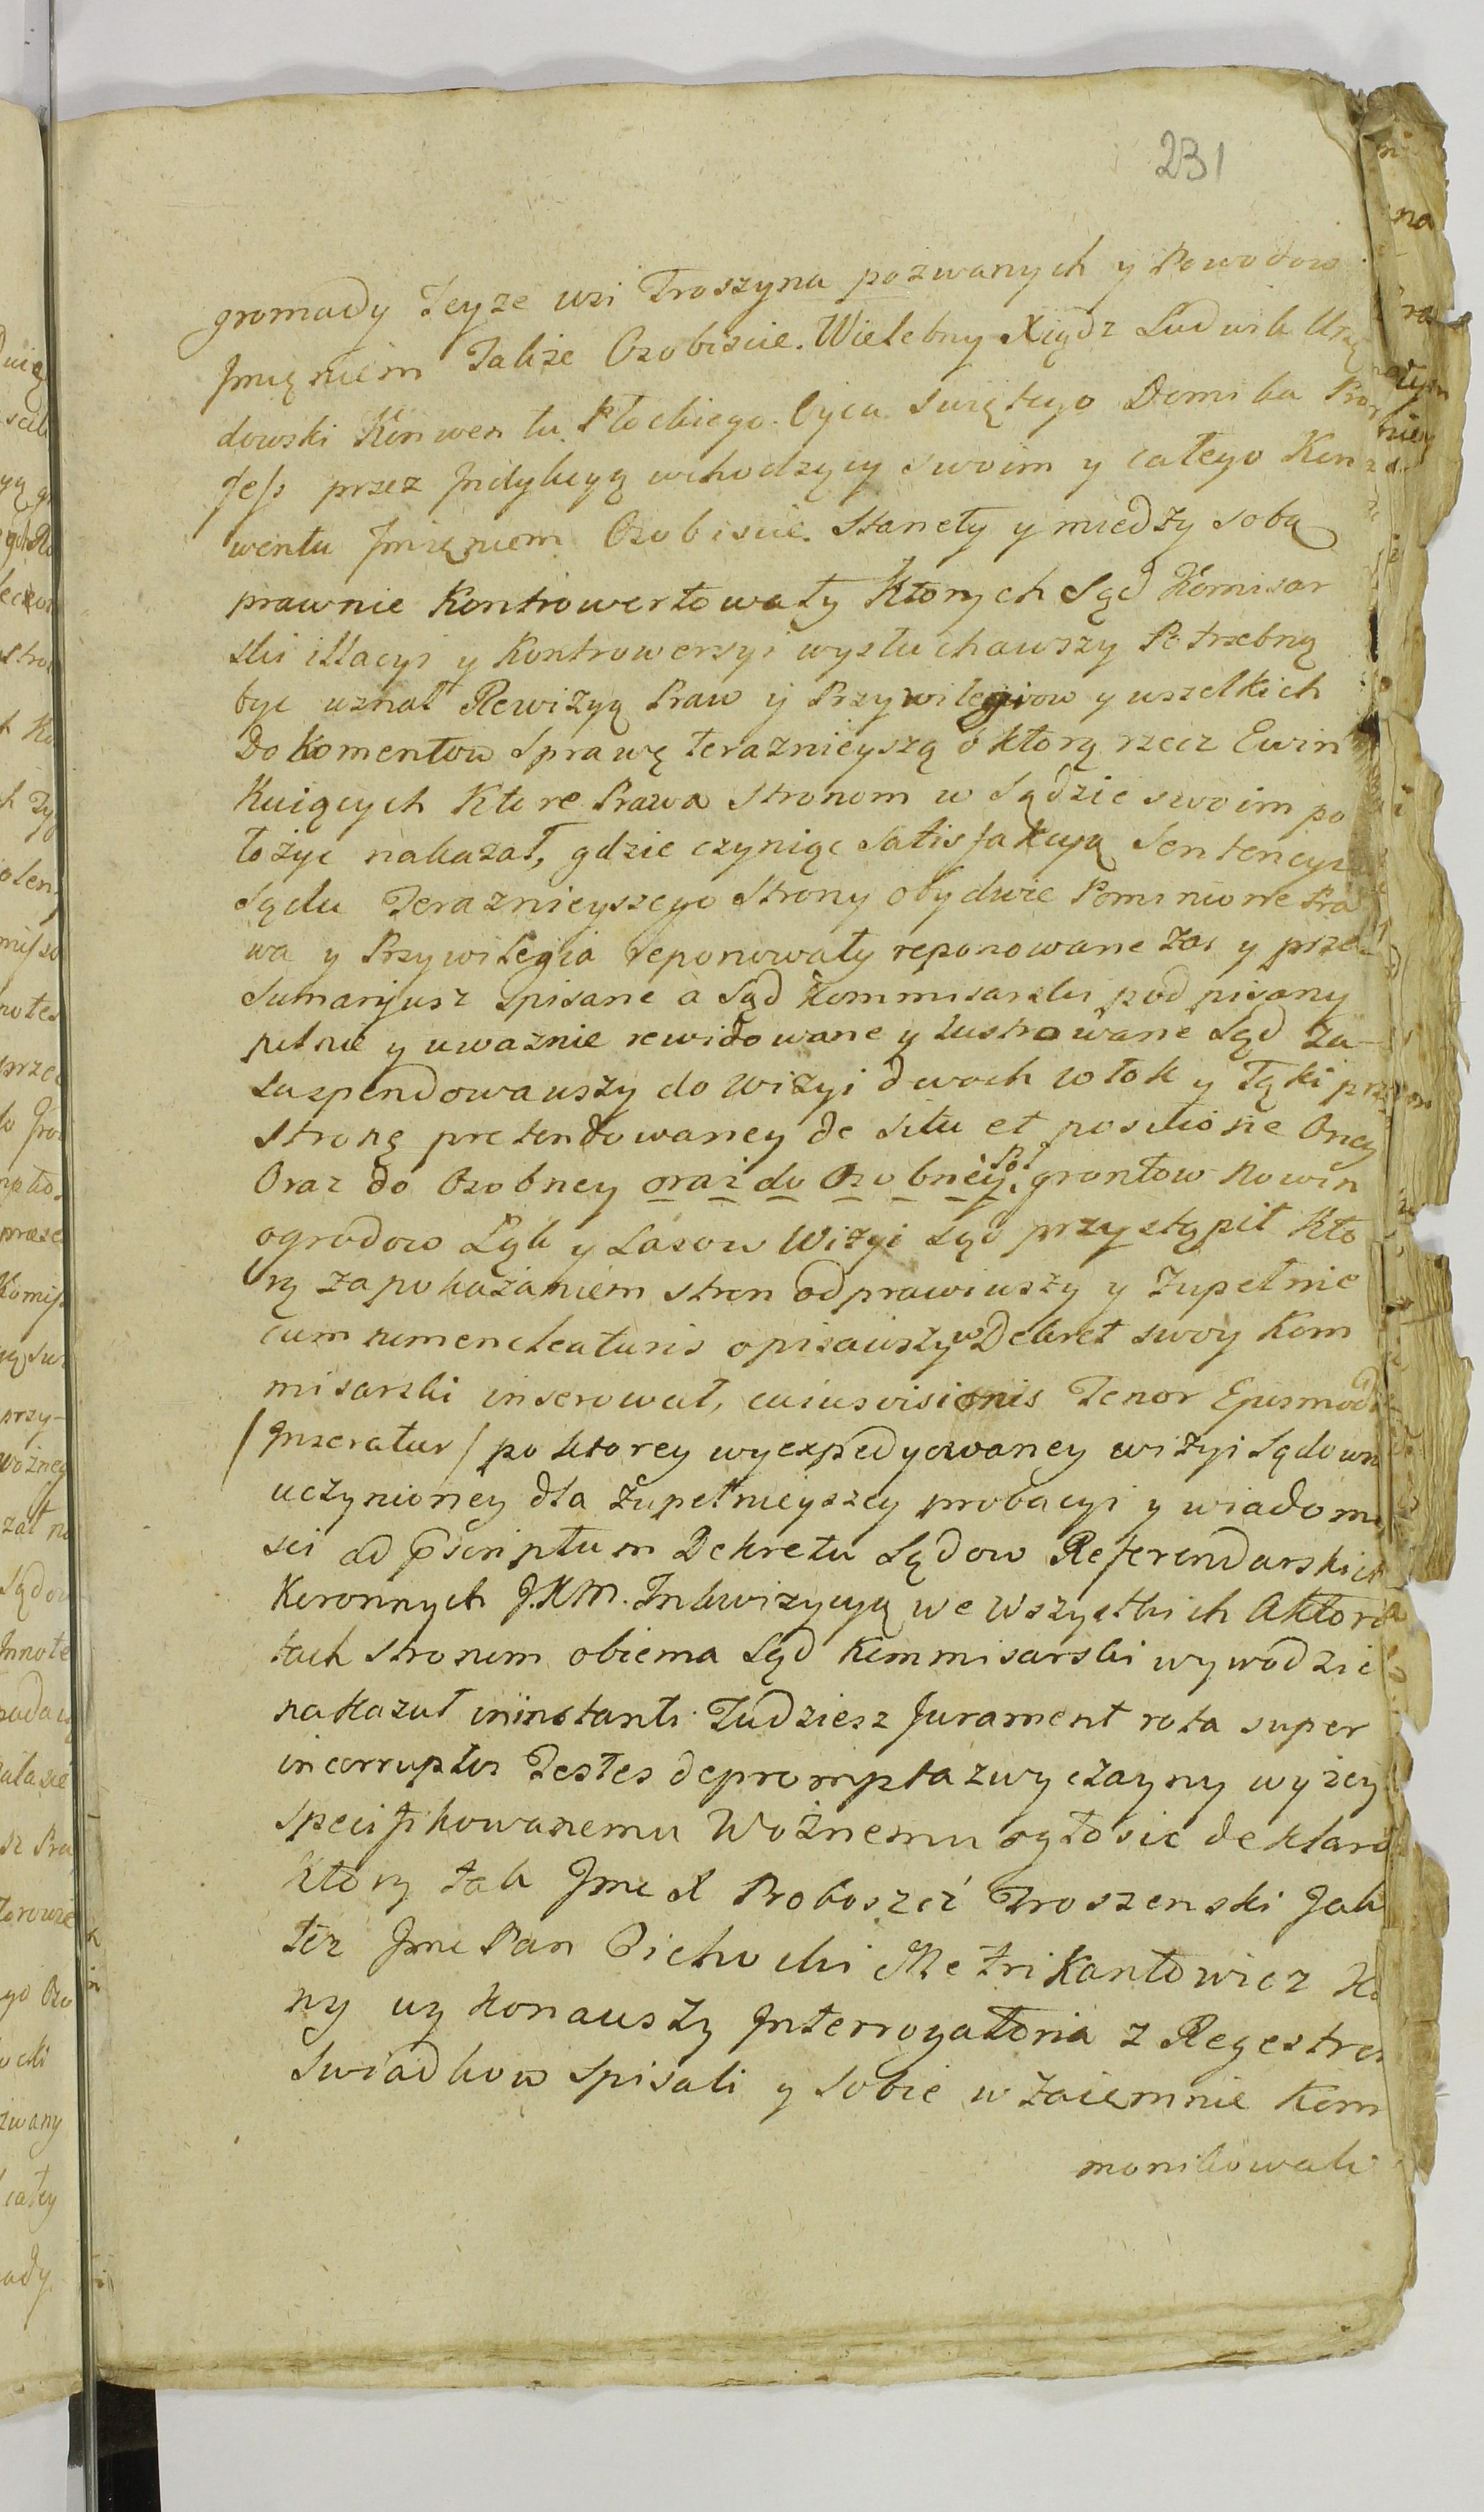 231
gromady Teyze wsi Troszyna pozwanych y Powodow
Jmięniem Takze Osobiscie. Wielebny Xiądz Ludwik Urzę
dowski Konwentu Płockiego Oyca Swiętego Dominika Prof
fess przez Indykcyą wchodzący swoim y całego Kon
wentu Jmięniem Osobiscie. Stanęły y między sobą
prawnie Kontrowertowały Ktorych Sąd Komisar
ski illacyi y Kontrowersyi wysłuchawszy Potrzebną
byc uznał Rewizyą Praw y Przywilegiow y wszelkich
Dokomentow Sprawę teraznieyszą o ktorą rzecz Ewin
kuiących Ktore Prawa Stronom w Sądzie swoim po
łożyc nakazał, gdzie czyniąc Satisfakcyą Sentencyi
Sądu Teraznieyszego Strony obydwie Pomienione Pra
wa y Przywilegia reponowały reponowane zas y przez
Sumaryusz spisane a Sąd Kommisarski podpisany
pilnie y uwaznie rewidowane y lustrowane Sąd za-
suspendowawszy do wizyi dwoch włok y Łąki przez
Stronę pretendowaney de situ et positione Oney
Oraz do Osobney oraz do Osobney pol grontow Nowin
ogrodow Łąk y Lasow Wizyi Sąd przystąpił Kto
rą za pokazaniem stron odprawiwszy y zupełnie
cum nomenclaturis opisawszy w Dekret swoy Kom
misarski inserował, cuius visionis Tenor Ejusmodi
/Inseratur/ po ktorey wyexpedyowaney wizyi Sądown
uczynioney dla zupełnieyszey probacyi y wiadomo
sci ad pscriptum Dekretu Sądow Referendarskich
Koronnych J.K.M. Inkwizycyą we wszystkich Aktora
tach stronom obiema Sąd Kommisarski wywodzic
nakazał in instanti Tudziesz Jurament rota super
incorruptos Testes deprompta zwyczayny wyżey
specifikowanemu Woznemu ogłosic deklaro
Ktory tak Jmc X Proboszcz Troszenski Jak
tez Jmc Pan Cichocki Metrikantowicz Ko
ny wykonawszy Interrogatoria z Regestrem
Swiadkow spisali y sobie wzaiemnie Kom
monikowali